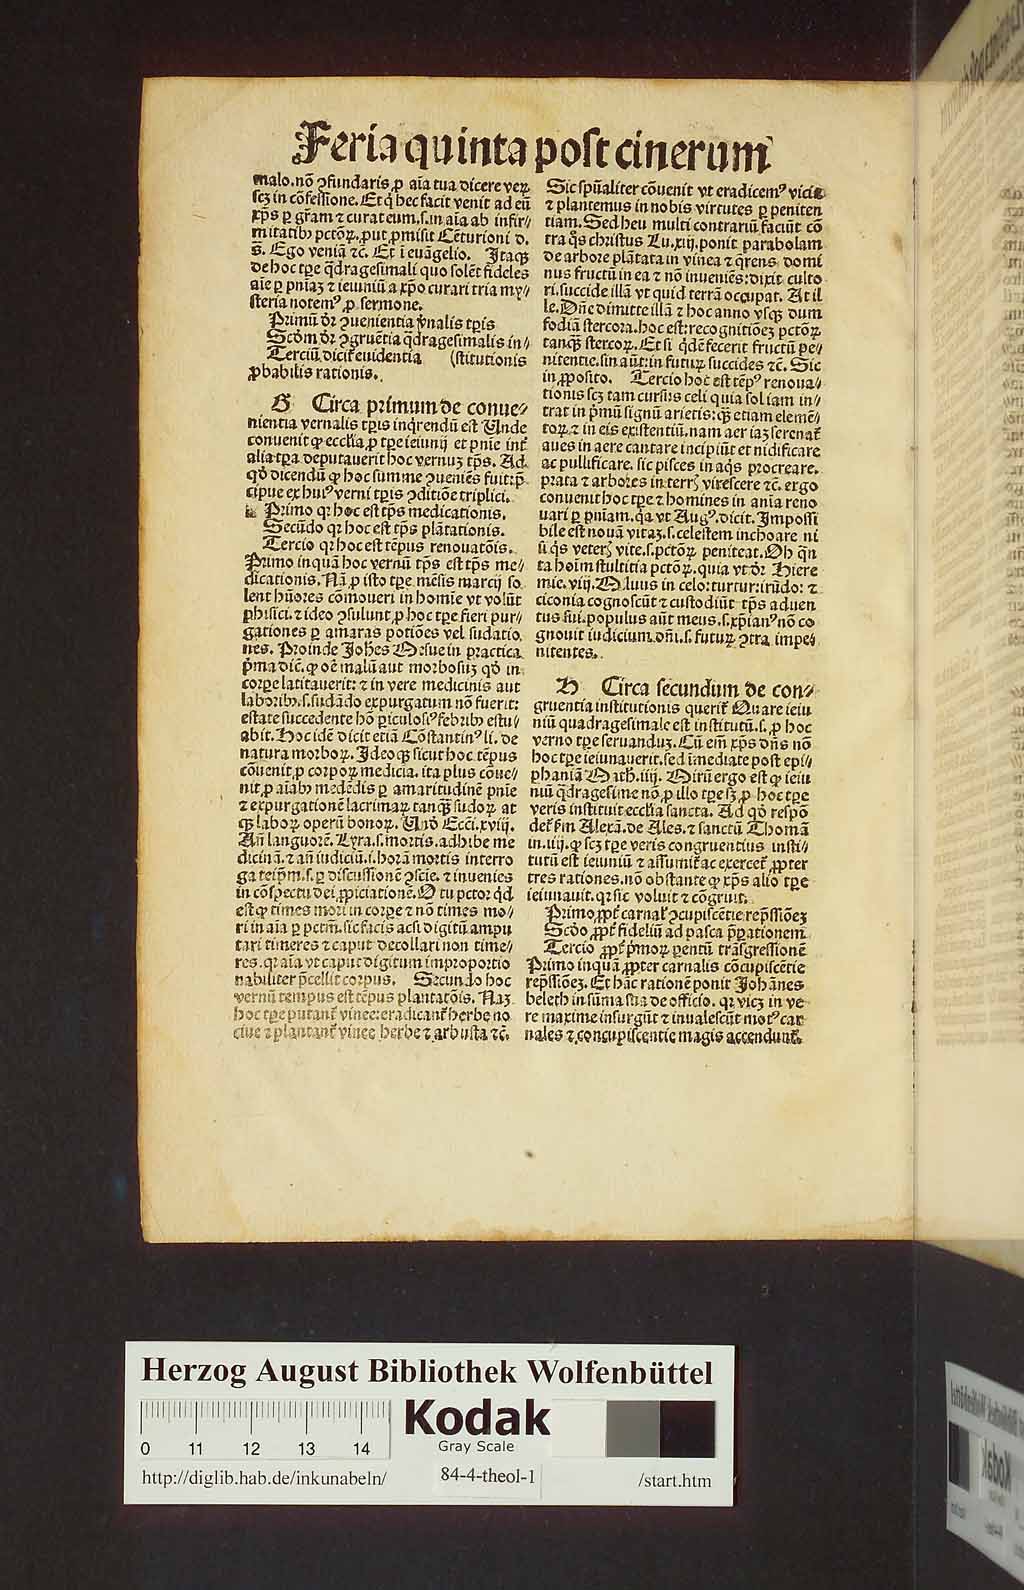 Feria quinta post cinerum
malo. nō ꝯfundaris ꝓ aīa tua dicere veꝝ
scꝫ in cōfessione. Et q̇ hec facit venit ad eū
xp̄s ꝑ gr̄am ⁊ curat eum. s. in aīa ab infir⸗
mitatibꝰ pctōꝝ. ꝓut ꝓmisit Cēturioni d.
s̄. Ego veniā ⁊c. Et ī euāgelio. Itaqꝫ
de hoc tꝑe q̄dragesimali quo solēt fideles
aīe ꝑ pn̄iaꝫ ⁊ ieiuniū a xp̄o curari tria my⸗
steria notemꝰ ꝓ sermone.
Primū dr̄ ꝯuenientia v̓nalis tꝑis
Scd̓m dr̄ ꝯgruētia q̄dragesimalis in⸗
Terciū dicit̄ euidentia (stitutionis
ꝓbabilis rationis.
G Circa primum de conue⸗
nientia vernalis tꝑis inq̇rendū est Unde
conuenit ꝙ eccl̓ia ꝓ tꝑe ieiunij et pn̄ie int̄
alia tꝑa deputauerit hoc vernuꝫ tp̄s. Ad
qd̓ dicendū ꝙ hoc summe ꝯueniēs fuit: p̄⸗
cipue ex huiꝰ verni tꝑis ꝯditiōe triplici.
Primo qꝛ hoc est tp̄s medicationis.
Secūdo qꝛ hoc est tp̄s plātationis.
Tercio qꝛ hoc est tēpus renouatōis.
Primo inquā hoc vernū tp̄s est tp̄s me⸗
dicationis. Nā ꝓ isto tꝑe mēsis marcij so
lent hūores cōmoueri in homīe vt volūt
phisici. ⁊ ideo ꝯsulunt ꝓ hoc tꝑe fieri pur⸗
gationes ꝑ amaras potiōes vel sudatio
nes. Proinde Joh̄es Mesue in practica
p̓ma dic̄. ꝙ oē malū aut morbosuꝫ qd̓ in
corꝑe latitauerit: ⁊ in vere medicinis aut
laboribꝰ. s. sudādo expurgatum nō fuerit:
estate succedente hō ꝑiculosiꝰ febribꝰ estu⸗
abit. Hoc idē dicit etiā Cōstantinꝰ li. de
natura morboꝝ. Ideoqꝫ sicut hoc tēpus
cōuenit ꝓ corpoꝝ medicīa. ita plus cōue⸗
nit ꝓ aīabꝰ medēdis ꝑ amaritudinē pn̄ie
⁊ expurgationē lacrimaꝝ tanqꝫ sudoꝝ at
qꝫ laboꝝ operū bonoꝝ. Uñ Ecci. xviij.
Añ languorē. Lyra. s. mortis. adhibe me
dicinā. ⁊ añ iudiciū. i. horā mortis interro
ga teip̄m. s. ꝑ discussionē ꝯscīe. ⁊ inuenies
in cōspectu dei ꝓpiciationē. O tu pctor qd̓
est ꝙ times mori in corꝑe ⁊ nō times mo⸗
ri in aīa ꝑ pctm̄. sic facis acsi digitū ampu
tari timeres ⁊ caput decollari non time⸗
res. qꝛ aīa vt caput digitum improportio
nabiliter p̄cellit corpus. Secundo hoc
vernū tempus est tēpus plantatōis. Naꝫ
hoc tꝑe putant̄ vinee: eradicant̄ herbe no
ciue ⁊ plantant̄ vinee herbe ⁊ arbusta ⁊c.
Sic spūaliter cōuenit vt eradicemꝰ vicia
⁊ plantemus in nobis virtutes ꝑ peniten
tiam. Sed heu multi contrariū faciūt cō
tra q̄s christus Lu. xiij. ponit parabolam
de arbore plātata in vinea ⁊ q̄rens domi
nus fructū in ea ⁊ nō inueniēs: dixit culto
ri. succide illā vt quid terrā occupat. At il
le. Dñe dimitte illā ⁊ hoc anno vsqꝫ dum
fodiā stercora. hoc est: recognitiōeꝫ pctōꝝ
tanqꝫ stercoꝝ. Et si qdē fecerit fructū pe⸗
nitentie. sin aūt: in futuꝝ succides ⁊c. Sic
in ꝓposito. Tercio hoc est tēpꝰ renoua⸗
tionis scꝫ tam cursus celi quia sol iam in⸗
trat in p̓mū signū arietis: qꝫ etiam elemē⸗
toꝝ ⁊ in eis existentiū. nam aer iaꝫ serenat̄
aues in aere cantare incipiūt et nidificare
ac pullificare. sic pisces in aq̇s procreare.
prata ⁊ arbores in terrꝭ virescere ⁊c. ergo
conuenit hoc tꝑe ⁊ homines in anīa reno
uari ꝑ pn̄iam. q̄a vt Augꝰ. dicit. Impossi
bile est nouā vitaꝫ. s. celestem inchoare ni
si q̇s veterꝭ vite. s. pctōꝝ peniteat. Oh q̄n
ta hoīm stultitia pctōꝝ. quia vt dr̄ Hiere
mie. viij. Miluus in celo: turtur: irūdo: ⁊
ciconia cognoscūt ⁊ custodiūt tp̄s aduen
tus sui. populus aūt meus. s. xp̄ianꝰ nō co
gnouit iudicium dñi. s. futuꝝ ꝯtra impe⸗
nitentes.
H Circa secundum de con⸗
gruentia institutionis querit̄ Quare ieiu
niū quadragesimale est institutū. s. ꝓ hoc
verno tꝑe seruanduꝫ. Cū em̄ xp̄s dn̄s nō
hoc tꝑe ieiunauerit. sed īmediate post epi⸗
phaniā Math. iiij. Mirū ergo est ꝙ ieiu
niū q̄dragesime nō ꝓ illo tꝑe sꝫ ꝓ hoc tꝑe
veris instituit eccl̓ia sancta. Ad qd̓ respō
det̄ ẜm Alexā. de Ales. ⁊ sanctū Thomā
in. iiij. ꝙ scꝫ tꝑe veris congruentius insti⸗
tutū est ieiuniū ⁊ assumit̄ ac exercet̄ ꝓpter
tres rationes. nō obstante ꝙ xp̄s alio tꝑe
ieiunauit. qꝛ sic voluit ⁊ cōgruit.
Primo ꝓpt̄ carnal̓ ꝯcupiscētie rep̄ssiōeꝫ
Scdo ꝓpt̄ fideliū ad pasca p̄ꝑationem
Tercio ꝓpt̄ p̓moꝝ parentū trāsgressionē
Primo inquā ꝓpter carnalis cōcupiscētie
rep̄ssiōeꝫ. Et hāc rationē ponit Johānes
beleth in sūma sua de officio. qꝛ vicꝫ in ve
re maxime insurgūt ⁊ inualescūt motꝰ car
nales ⁊ concupiscentie magis accendunt̄.
Herzog August Bibliothek Wolfenbüttel
Kodak
Gray Scale
0 11 12 13 14
http://diglib.hab.de/inkunabeln/ 84-4-theol-1 /start.htm